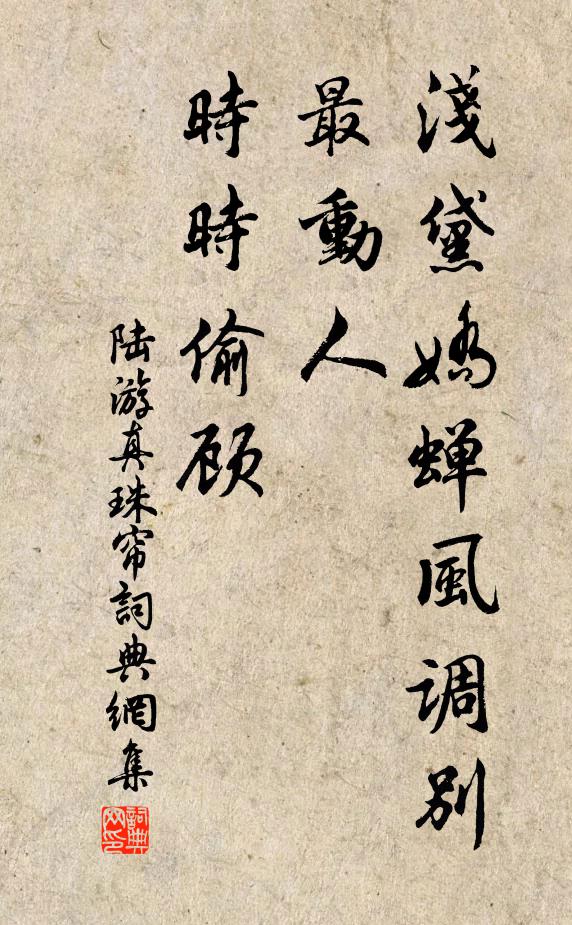 淺黛嬌蟬風调別
最動人
時時偷顾
陆游真珠帘詞典網集
詞典网印